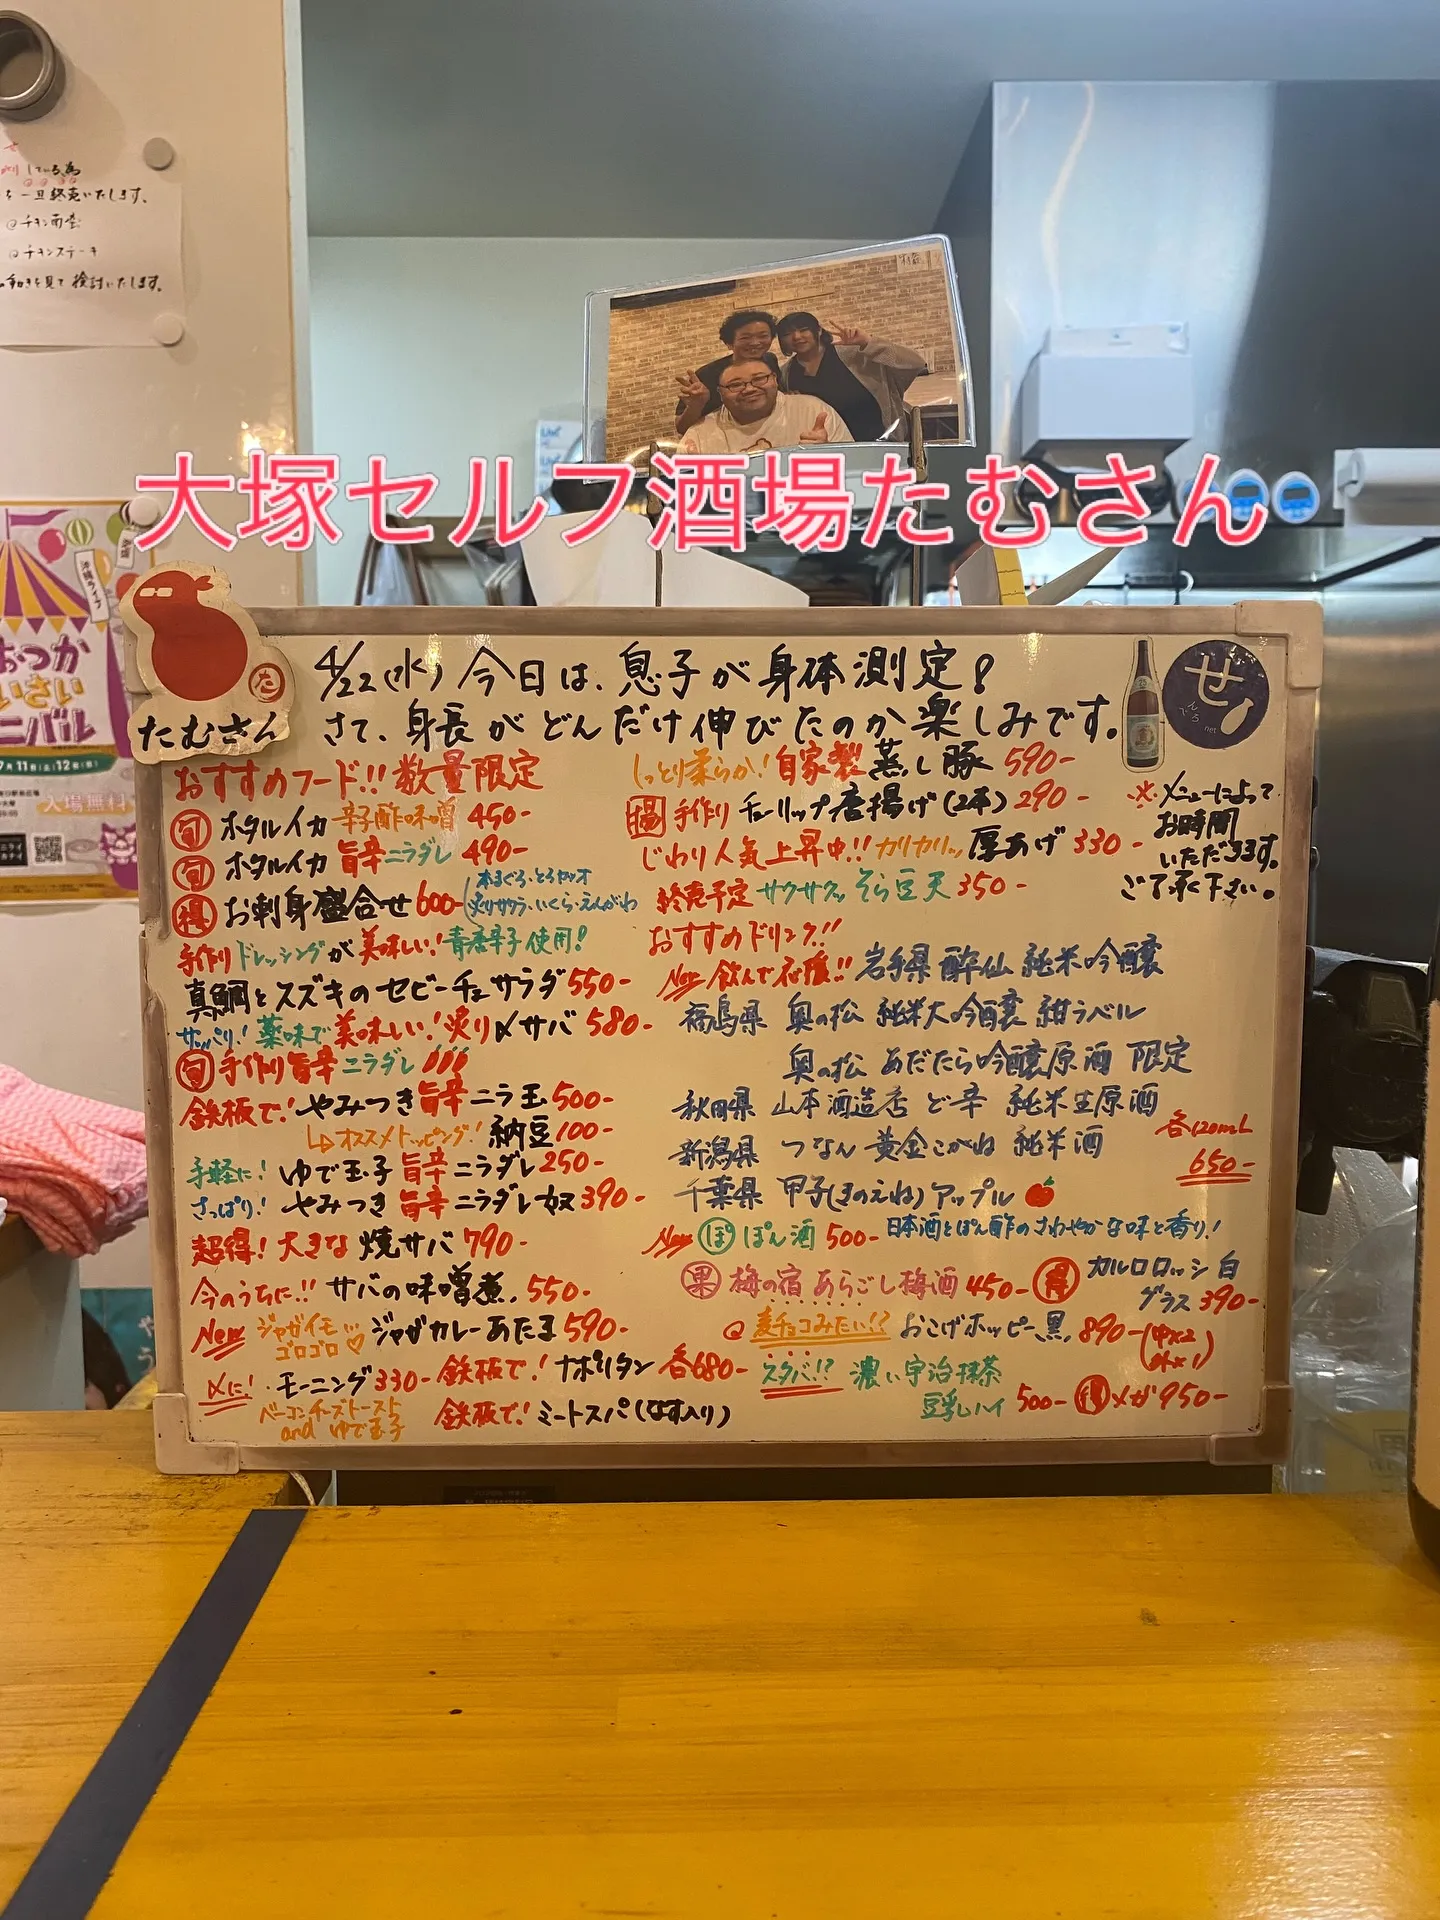 している為
一旦終売いたします。
チキン南蛮
チキンステーキ
を見て検討いたします。
大塚セルフ酒場たむさん
沖縄ライブ
おつか
いさい
ニバル
7月11日(土)12日(日)
入場無料
たむさん
た
せ
んべろ
net
4/22(水)今日は、息子が身体測定!
さて、身長がどんだけ伸びたのか楽しみです。
おすすめフード!!数量限定
旬 ホタルイカ 辛子酢味噌 450-
旬 ホタルイカ 旨辛ニラダレ 490-
得 お刺身盛合せ 600- 本まぐろ・とろカツオ
炙りサワラ・いくら・えんがわ
手作りドレッシングが美味しい!青唐辛子使用!
真鯛とスズキのセビーチェサラダ 550-
サッパリ!薬味で美味しい!炙り〆サバ 580-
旬 手作り旨辛ニラダレ
鉄板で!やみつき旨辛ニラ玉 500-
オススメトッピング!納豆 100-
手軽に!ゆで玉子 旨辛ニラダレ 250-
さっぱり!やみつき 旨辛ニラダレ奴 390-
超得!大きな焼サバ 790-
今のうちに!!サバの味噌煮 550-
New ジャガイモ ジャガカレーあたま 590-
ゴロゴロ♡
〆に!・モーニング 330-
ベーコンチーズトースト
and ゆで玉子
鉄板で!ナポリタン 各680-
鉄板で!ミートスパ(なす入り)
しっとり柔らか!自家製蒸し豚 590-
揚 手作り チューリップ唐揚げ(2本) 290-
じわり人気上昇中!!カリカリッ厚あげ 330-
終売予定 サクサクッそら豆天 350-
※メニューによって
お時間
いただきます。
ご了承下さい。
おすすめドリンク!!
New 飲んで応援!! 岩手県 酔仙 純米吟醸
福島県 奥の松 純米大吟醸 紺ラベル
奥の松 あだたら吟醸原酒 限定
秋田県 山本酒造店 ど辛 純米生原酒
新潟県 つなん 黄金こがね 純米酒
千葉県 甲子(きのえね)アップル
各120mL
650-
New ぽ ぽん酒 500- 日本酒とぽん酢のさわやかな味と香り!
果 梅の宿 あらごし梅酒 450-
得 カルロロッシ 白
グラス 390-
麦チョコみたい!? おこげホッピー黒 890-(中×2
外×1)
スタバ!? 濃い宇治抹茶
豆乳ハイ 500- 得 メガ 950-